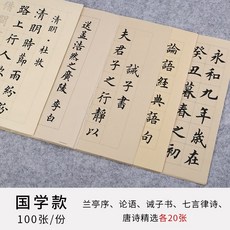 永和九年歲在
癸丑暮春之初
論語經典語句
誡子書
夫君子之行靜以
送孟浩然之廣陵 李白
清明·杜牧
清明時節雨紛紛
路上行人欲
国学款
100张/份
兰亭序、论语、诫子书、七言律诗、
唐诗精选各20张